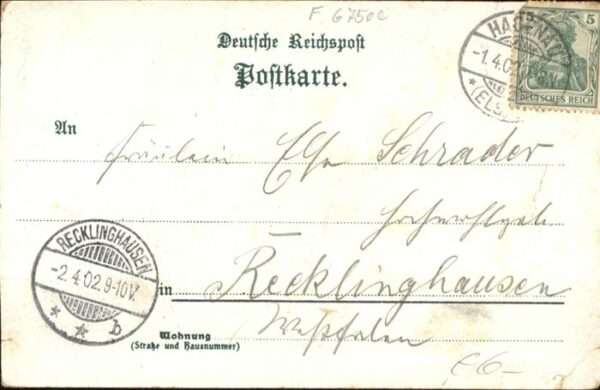 F 6750c
Deutsche Reichspost
Postkarte.
HAGENAU
-1.4.02
(ELS
5
DEUTSCHES REICH
An
Fräulein Else Schrader
RECKLINGHAUSEN
-2.4.02.9-10V.
b
in Recklinghausen
Westfalen
Wohnung
(Straße und Hausnummer)